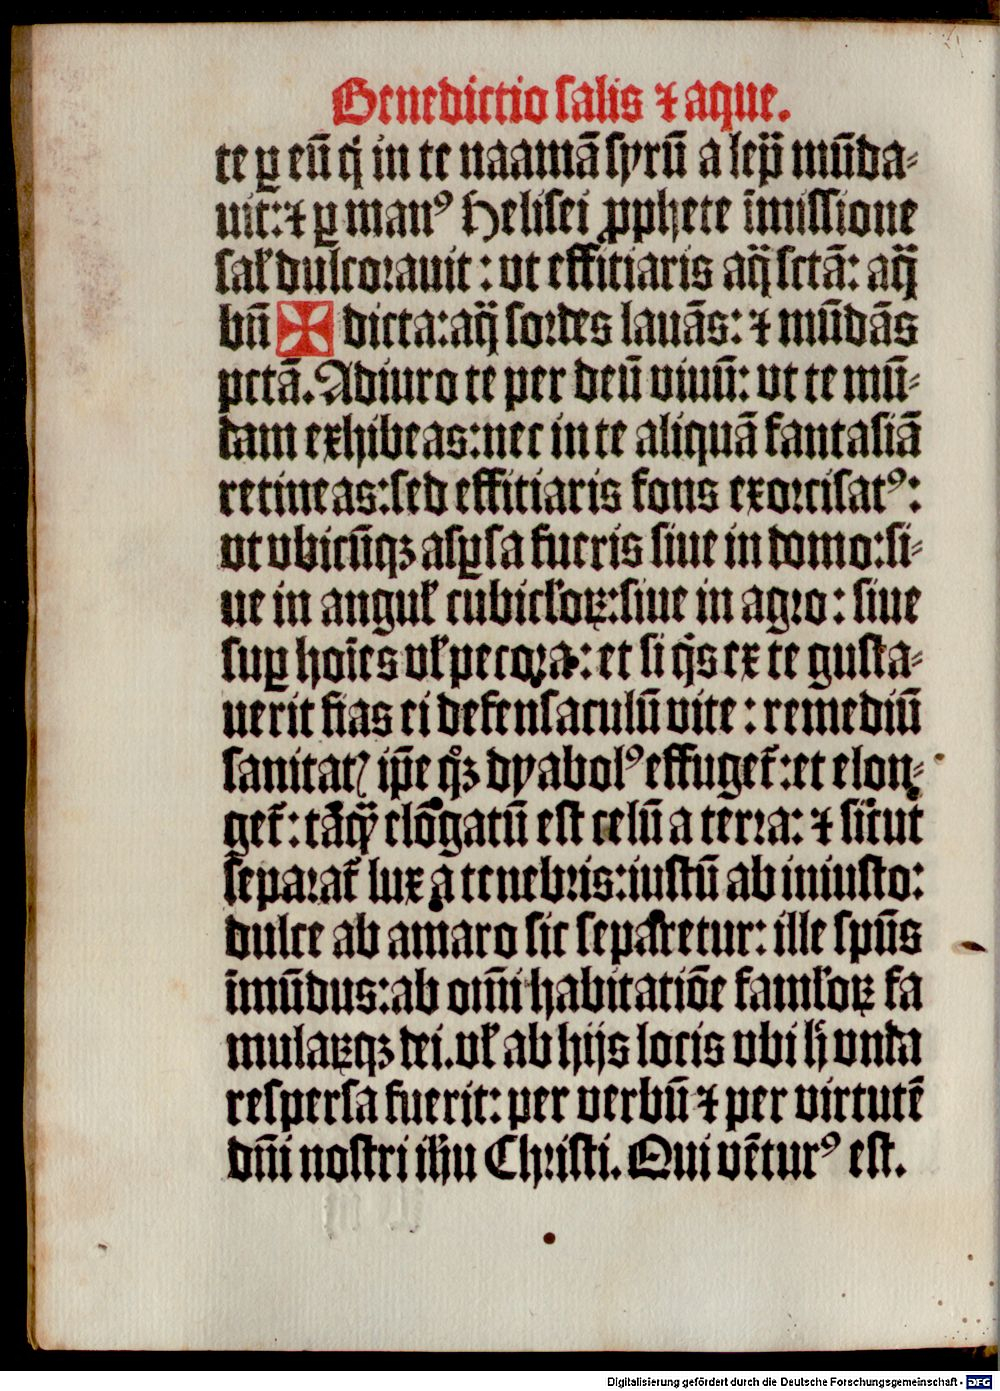 Benedictio salis ⁊ aque.
te ꝑ eū q̇ in te naamā syrū a lep̄ mūda⸗
uit: ⁊ ꝑ manꝰ Helisei ꝓphete īmissione
sal̵ dulcorauit: vt effitiaris aq̄ sctā: aq̄
bn̄ ✠ dicta: aq̄ sordes lauās: ⁊ mūdās
pctā. Adiuro te per deū viuū: vt te mū⸗
dam exhibeas: nec in te aliquā fantasiā
retineas: sed effitiaris fons exorcisatꝰ:
vt vbicūqꝫ asꝑsa fueris siue in domo: si⸗
ue in angul̵ cubicl̵oꝝ: siue in agro: siue
suꝑ hoīes vl̵ pecora: et si q̇s ex te gusta⸗
uerit fias ei defensaculū vite: remediū
sanitatꝭ ip̄e qͦꝫ dyabolꝰ effuget᷑: et elon⸗
get᷑: tāq̄ elōgatū est celū a terra: ⁊ sicut
separat᷑ lux a tenebris: iustū ab iniusto:
dulce ab amaro sic separetur: ille spūs
īmūdus: ab om̄i habitatiōe faml̵oꝝ fa
mulaꝝqꝫ dei. vl̵ ab hijs locis vbi h̄ vnda
respersa fuerit: per verbū ⁊ per virtutē
dn̄i nostri ih̄u Christi. Qui vētur⁹ est.
Digitalisierung gefördert durch die Deutsche Forschungsgemeinschaft - DFG